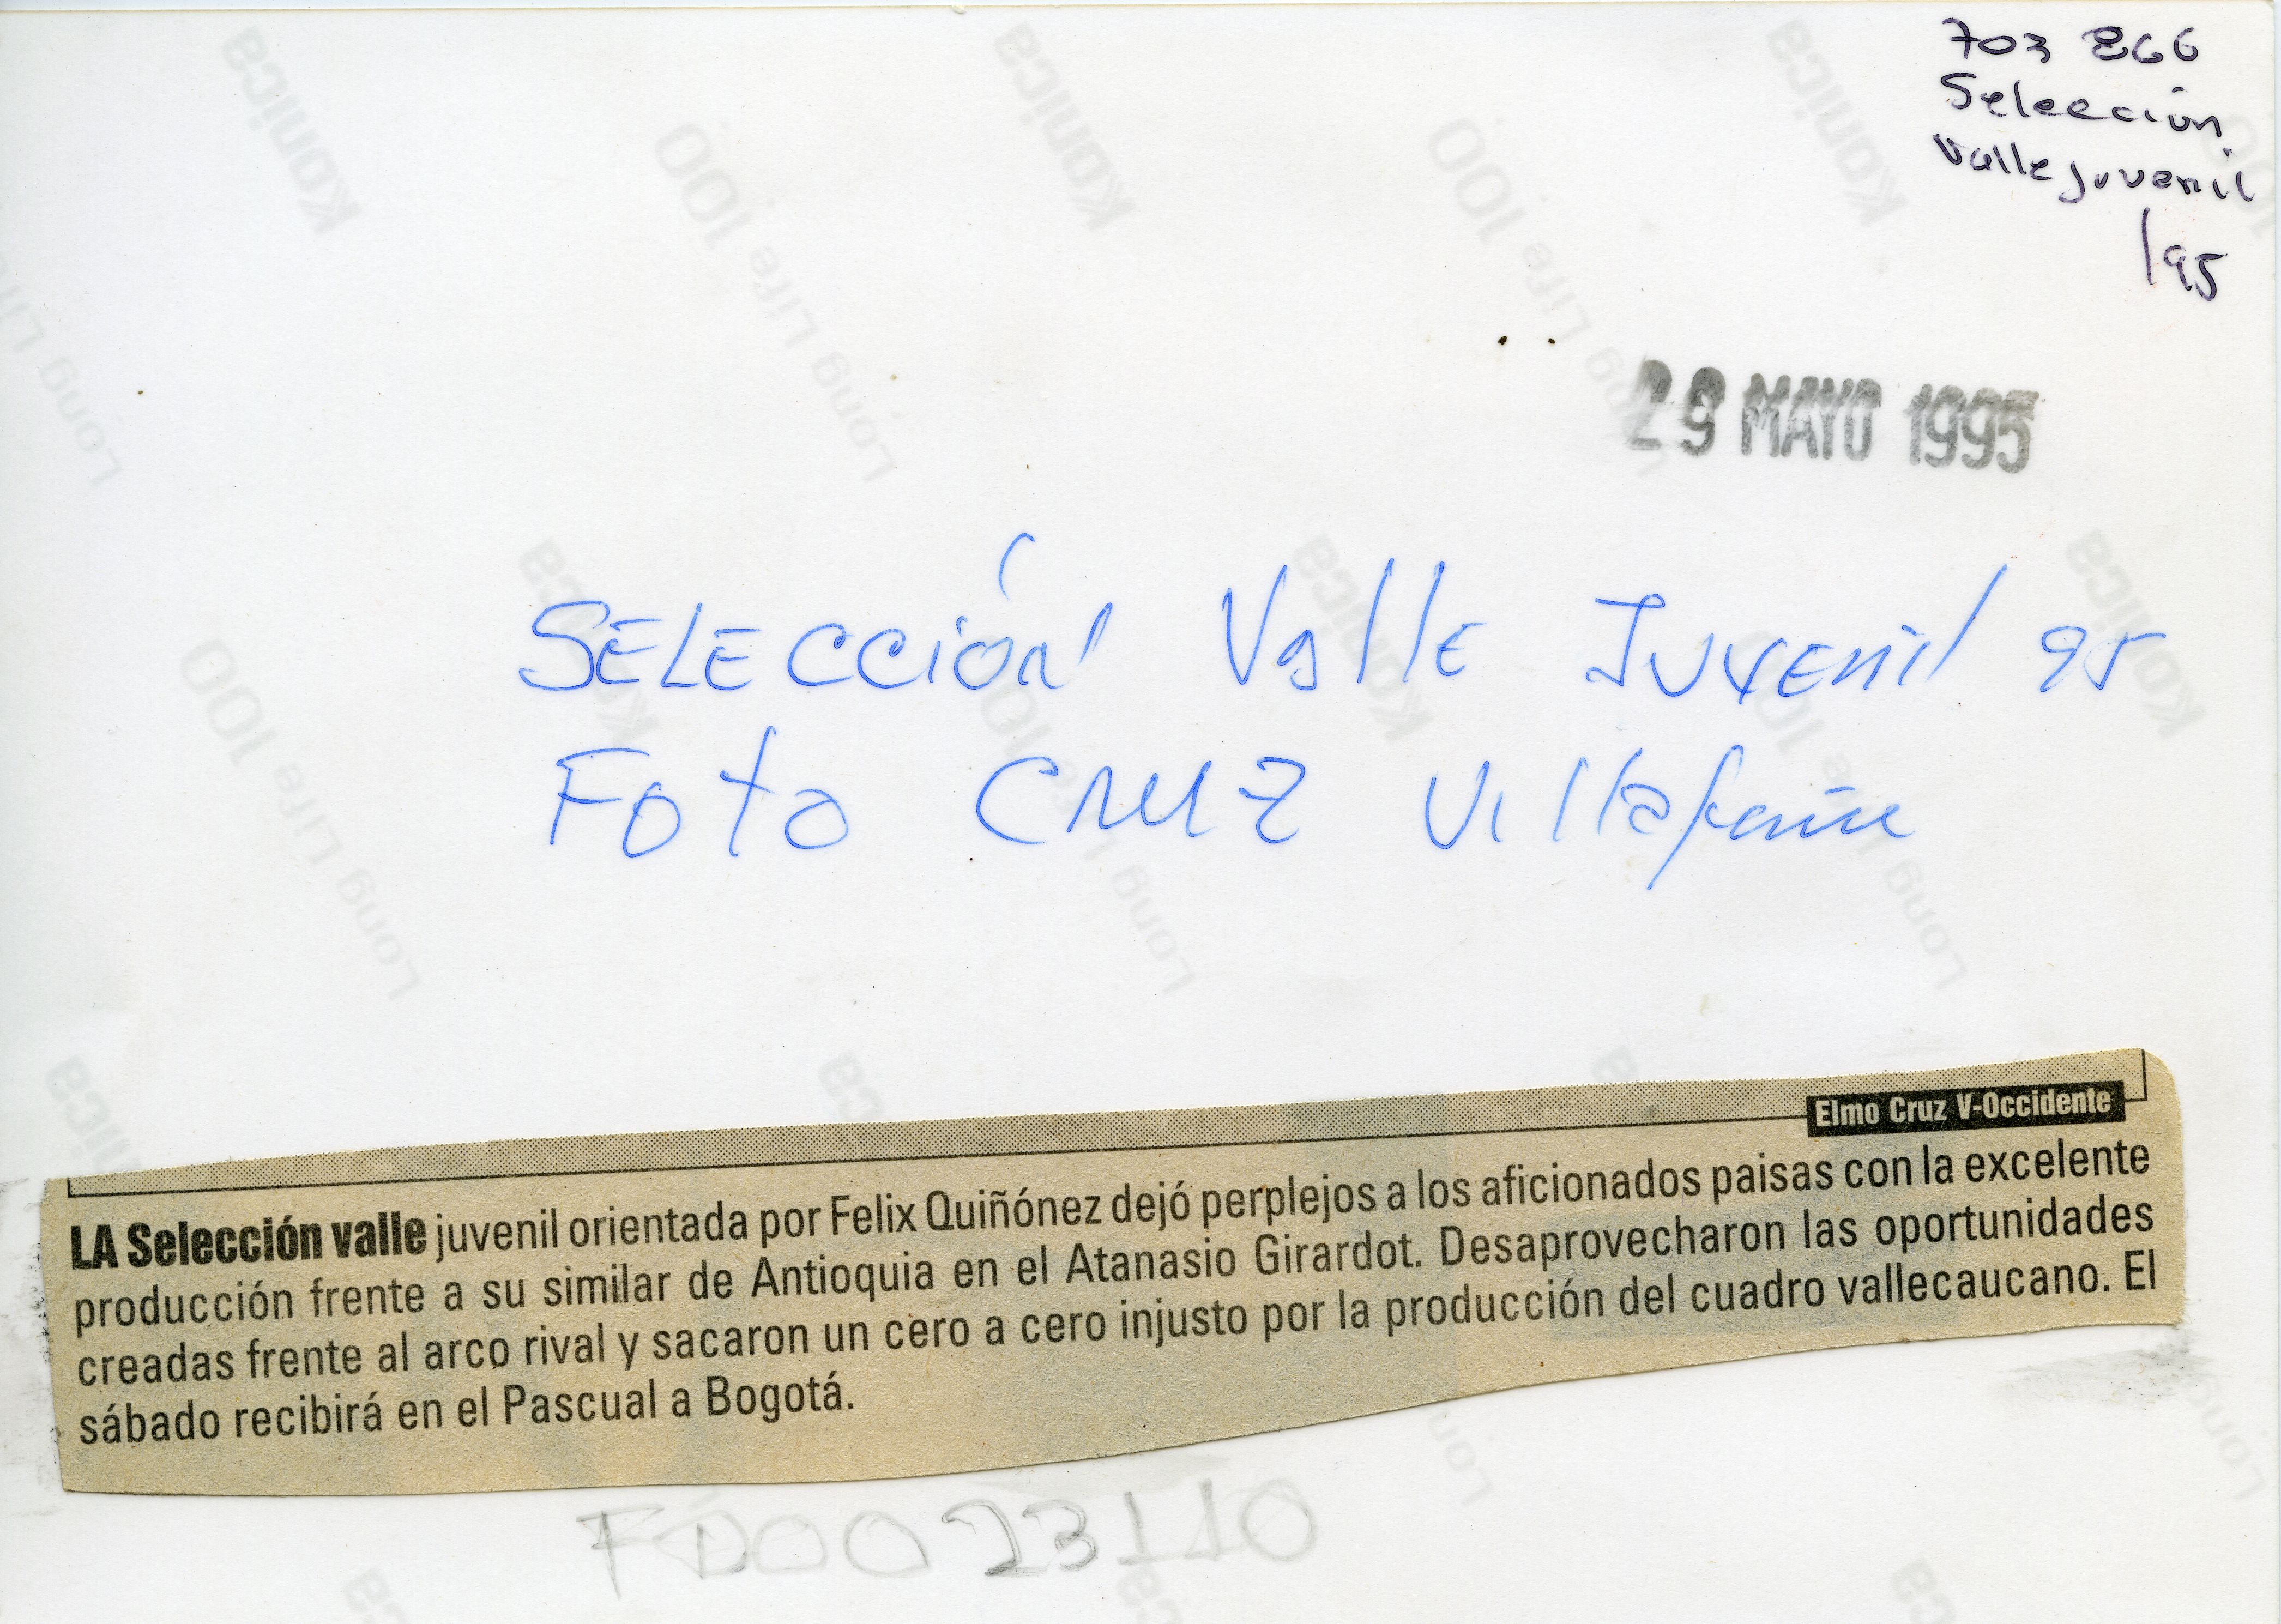 703 866
Selección
Valle juvenil
/95
29 MAYO 1995
SELECCIÓN Valle JUVENIL 95
Foto CRUZ Villafañe
Elmo Cruz V-Occidente
LA Selección valle juvenil orientada por Felix Quiñónez dejó perplejos a los aficionados paisas con la excelente
producción frente a su similar de Antioquia en el Atanasio Girardot. Desaprovecharon las oportunidades
creadas frente al arco rival y sacaron un cero a cero injusto por la producción del cuadro vallecaucano. El
sábado recibirá en el Pascual a Bogotá.
FD0023110
Konica
Long Life 100